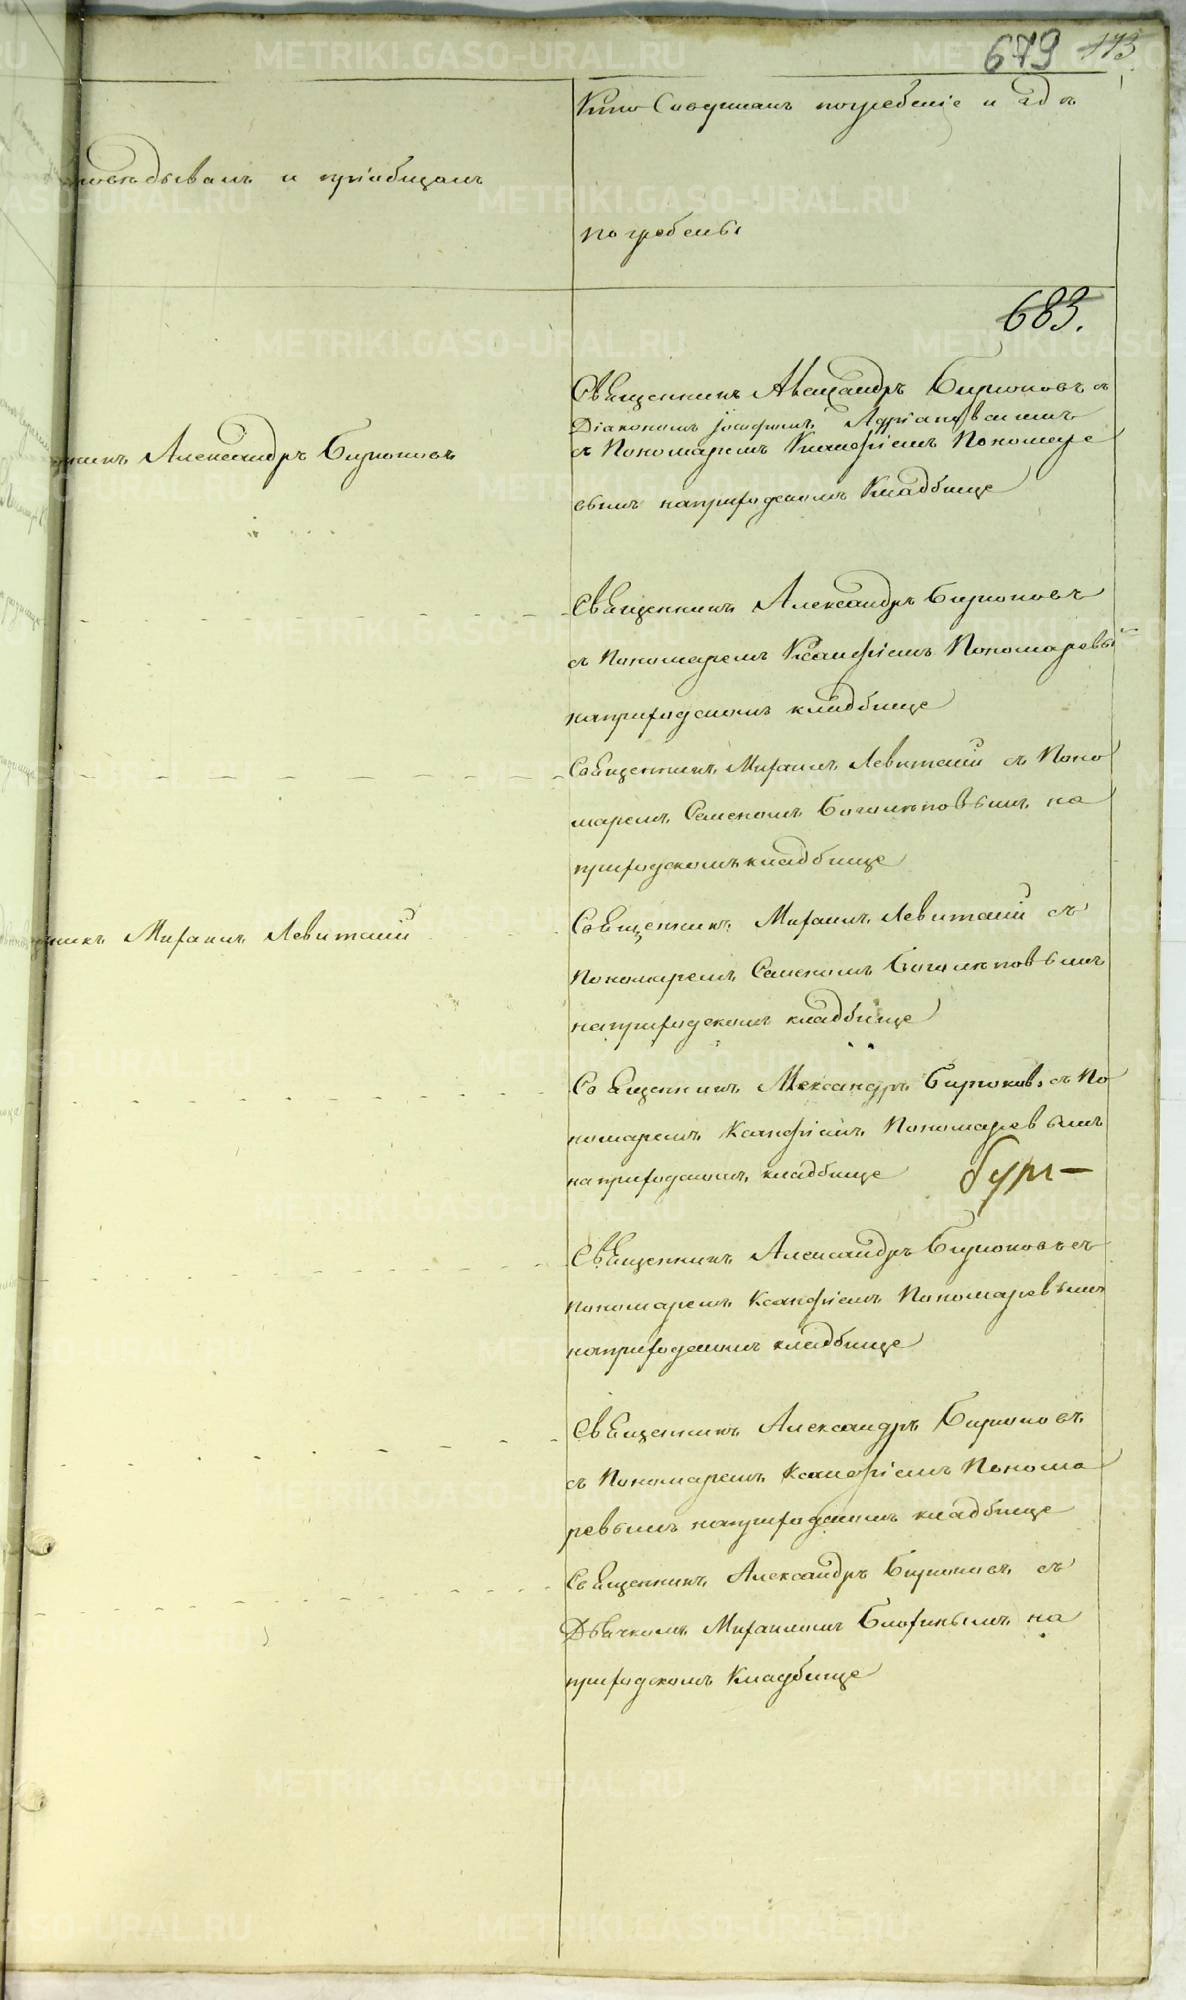 679 173
Кто Совершалъ погребеніе и гдѣ
исповѣдывалъ и пріобщалъ
погребены
683.
Священникъ Александръ Бирюковъ съ
Діакономъ Іосифомъ
съ Пономаремъ Ксанфіемъ Пономаре
вымъ наприходскомъ Кладбище
никъ Александръ Бирюковъ
Священникъ Александръ Бирюковъ
съ Пономаремъ Ксанфіемъ Пономаревы
наприходскомъ кладбище
Священникъ Михаилъ Левитскій съ Поно
маремъ Семеномъ Боголѣповымъ на
приходскомъ кладбище
никъ Михаилъ Левитскій
Священникъ Михаилъ Левитскій съ
Пономаремъ Семеномъ Боголѣповымъ
наприходскомъ кладбище
Священникъ Александръ Бирюковъ съ По
номаремъ Ксанфіемъ Пономаревымъ
наприходскомъ кладбище
Священникъ Александръ Бирюковъ съ
пономаремъ Ксанфіемъ Пономаревымъ
наприходскомъ кладбище
Священникъ Александръ Бирюковъ
съ Пономаремъ Ксанфіемъ Понома
ревымъ наприходскомъ кладбище
Священникъ Александръ Бирюковъ съ
Дьячкомъ Михаиломъ Блохинымъ на
приходскомъ Кладбище
METRIKI.GASO-URAL.RU